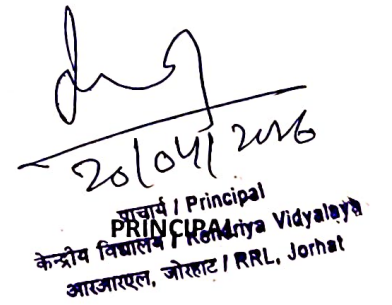 20/04/2026
प्राचार्य / Principal
PRINCIPAL
केन्द्रीय विद्यालय / Kendriya Vidyalaya
आरआरएल, जोरहाट / RRL, Jorhat